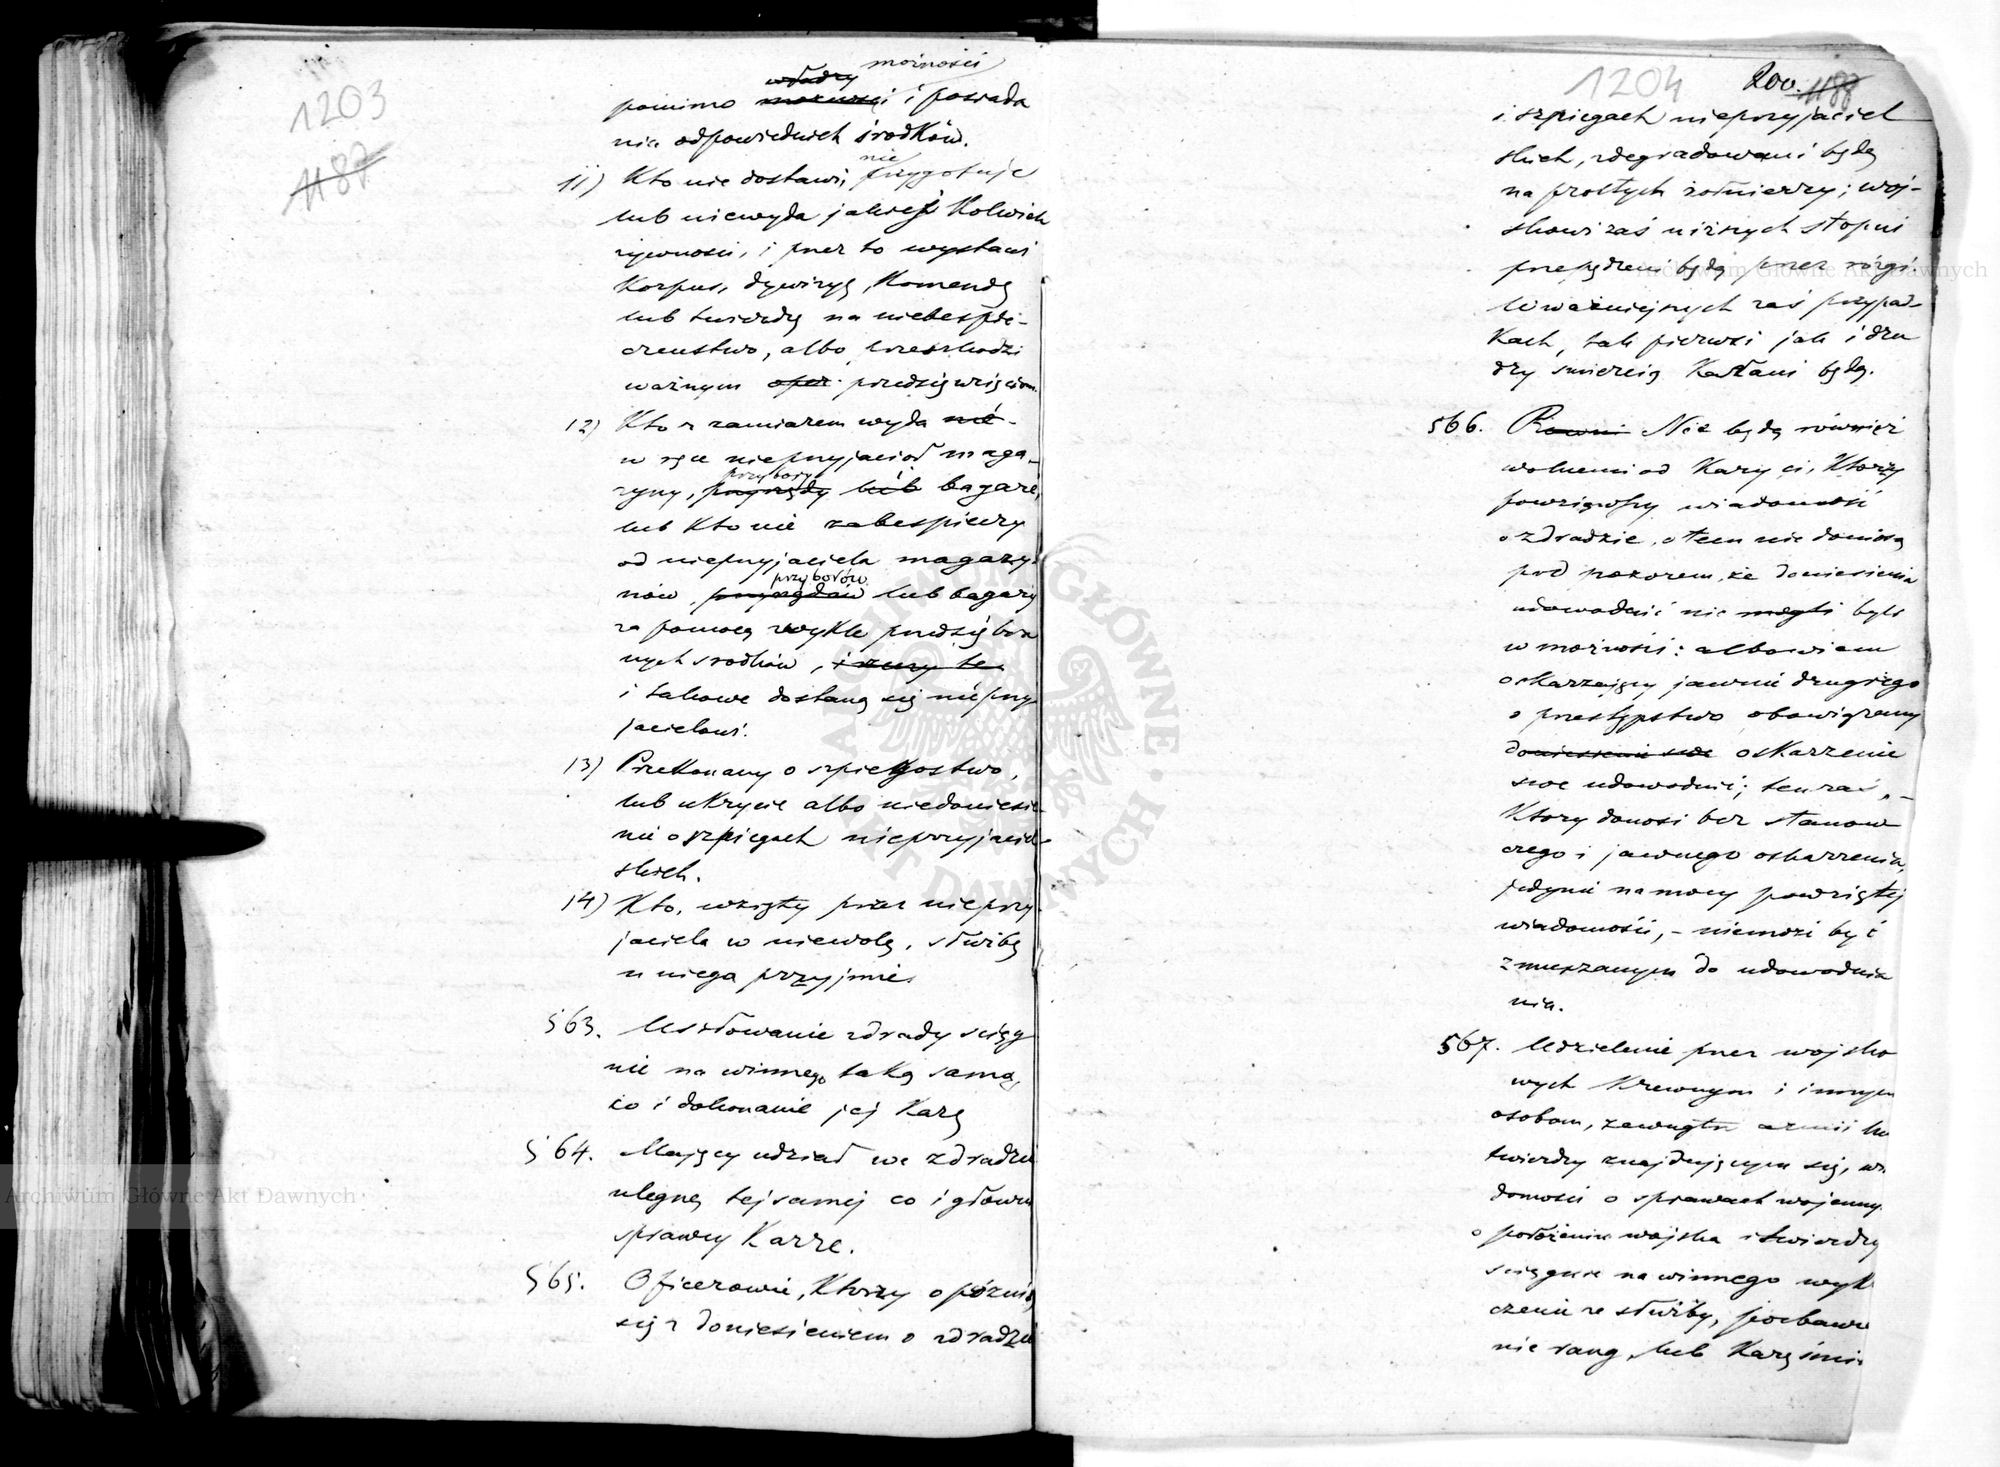 1203
1187
możności
władzy
pomimo możności i posiada
nia odpowiednich środków.
11) Kto nie dostawi, nie przygotuje
lub niewyda jakiejś Kolwiek
żywności, i przez to wystawi
Korpus, dywizyę, Komendę
lub twierdzę na niebezpie-
czeństwo, albo przeszkodzi
ważnym oper. przedsięwzięciom.
12) Kto z zamiarem wyda nie-
w ręce nieprzyjaciół maga-
przybory
zyny, przyrzędy lub bagaże,
lub Kto nie zabespieczy
od nieprzyjaciela magazy-
przyborów
nów, przyrzędów lub bagaży
za pomocą zwykle przedsiębra
nych srodków, i czury te
i takowe dostaną się nieprzy
jacielowi.
13) Przekonany o szpiegostwo,
lub ukrycie albo niedoniesie-
nie o szpiegach nieprzyjaciel-
skich.
14) Kto, wzięty przez nieprzy-
jaciela w niewolę, służbę
u niego przyjmie.
563. Usiłowanie zdrady ściąg
nie na winnego taką samą,
co i dokonanie jej Karę
564. Mający udział we zdradzie
ulegną tej samej co i główni
sprawcy Karze.
565. Oficerowie, Którzy opóźnią
się z doniesieniem o zdradzie
1204 200. 1188
i szpiegach nieprzyjaciel
skich, zdegradowani będą
na prostych żołnierzy; woj-
skowi zaś niższych stopni
przepędzeni będą przez rózgi
W ważniejszych zaś przypad-
kach, tak pierwsi jak i dru
dzy smiercią Karani będą.
566. Rowni Nie będą również
wolnemi od Kary ci, Którzy
powziąwszy wiadomość
o zdradzie, o tem nie doniosą
pod pozorem, że doniesienia
udowodnić nie mogli byli
w możności: albowiem
oskarzający jawnie drugiego
o przestępstwo obowiązany
doniesienie swe oskarzenie
swe udowodnić; ten zaś, -
Który donosi bez stanow
czego i jawnego oskarzenia,
jedynie na mocy powziętej
wiadomości, - niemoże być
zmuszanym do udowodnia
nia.
567. Udzielenie przez wojsko
wych Krewnym i innym
osobom, zewnątrz armii lu
twierdzy znajdującym się, wi
domości o sprawach wojenny
o położeniu wojska i twierdzy
ściągnie na winnego wyk
czenie ze służby, pozbawie
nie rang, lub Karę śmie
Archiwum Główne Akt Dawnych
Archiwum Główne Akt Dawnych
ARCHIWUM GŁÓWNE AKT DAWNYCH